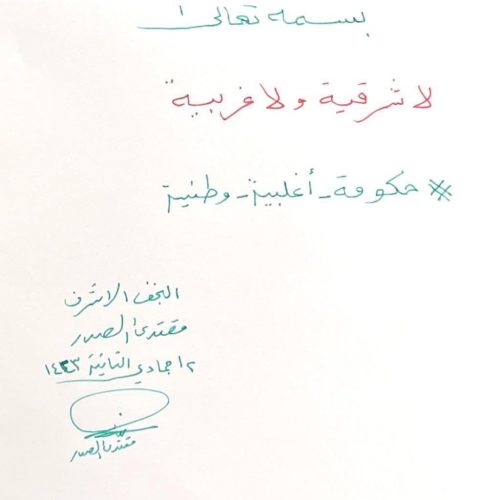 بسمه تعالى
لا شرقية ولا غربية
# حكومة - أغلبية - وطنية
النجف الاشرف
مقتدى الصدر
١٢ جمادي الثانية ١٤٤٣
مقتدى الصدر